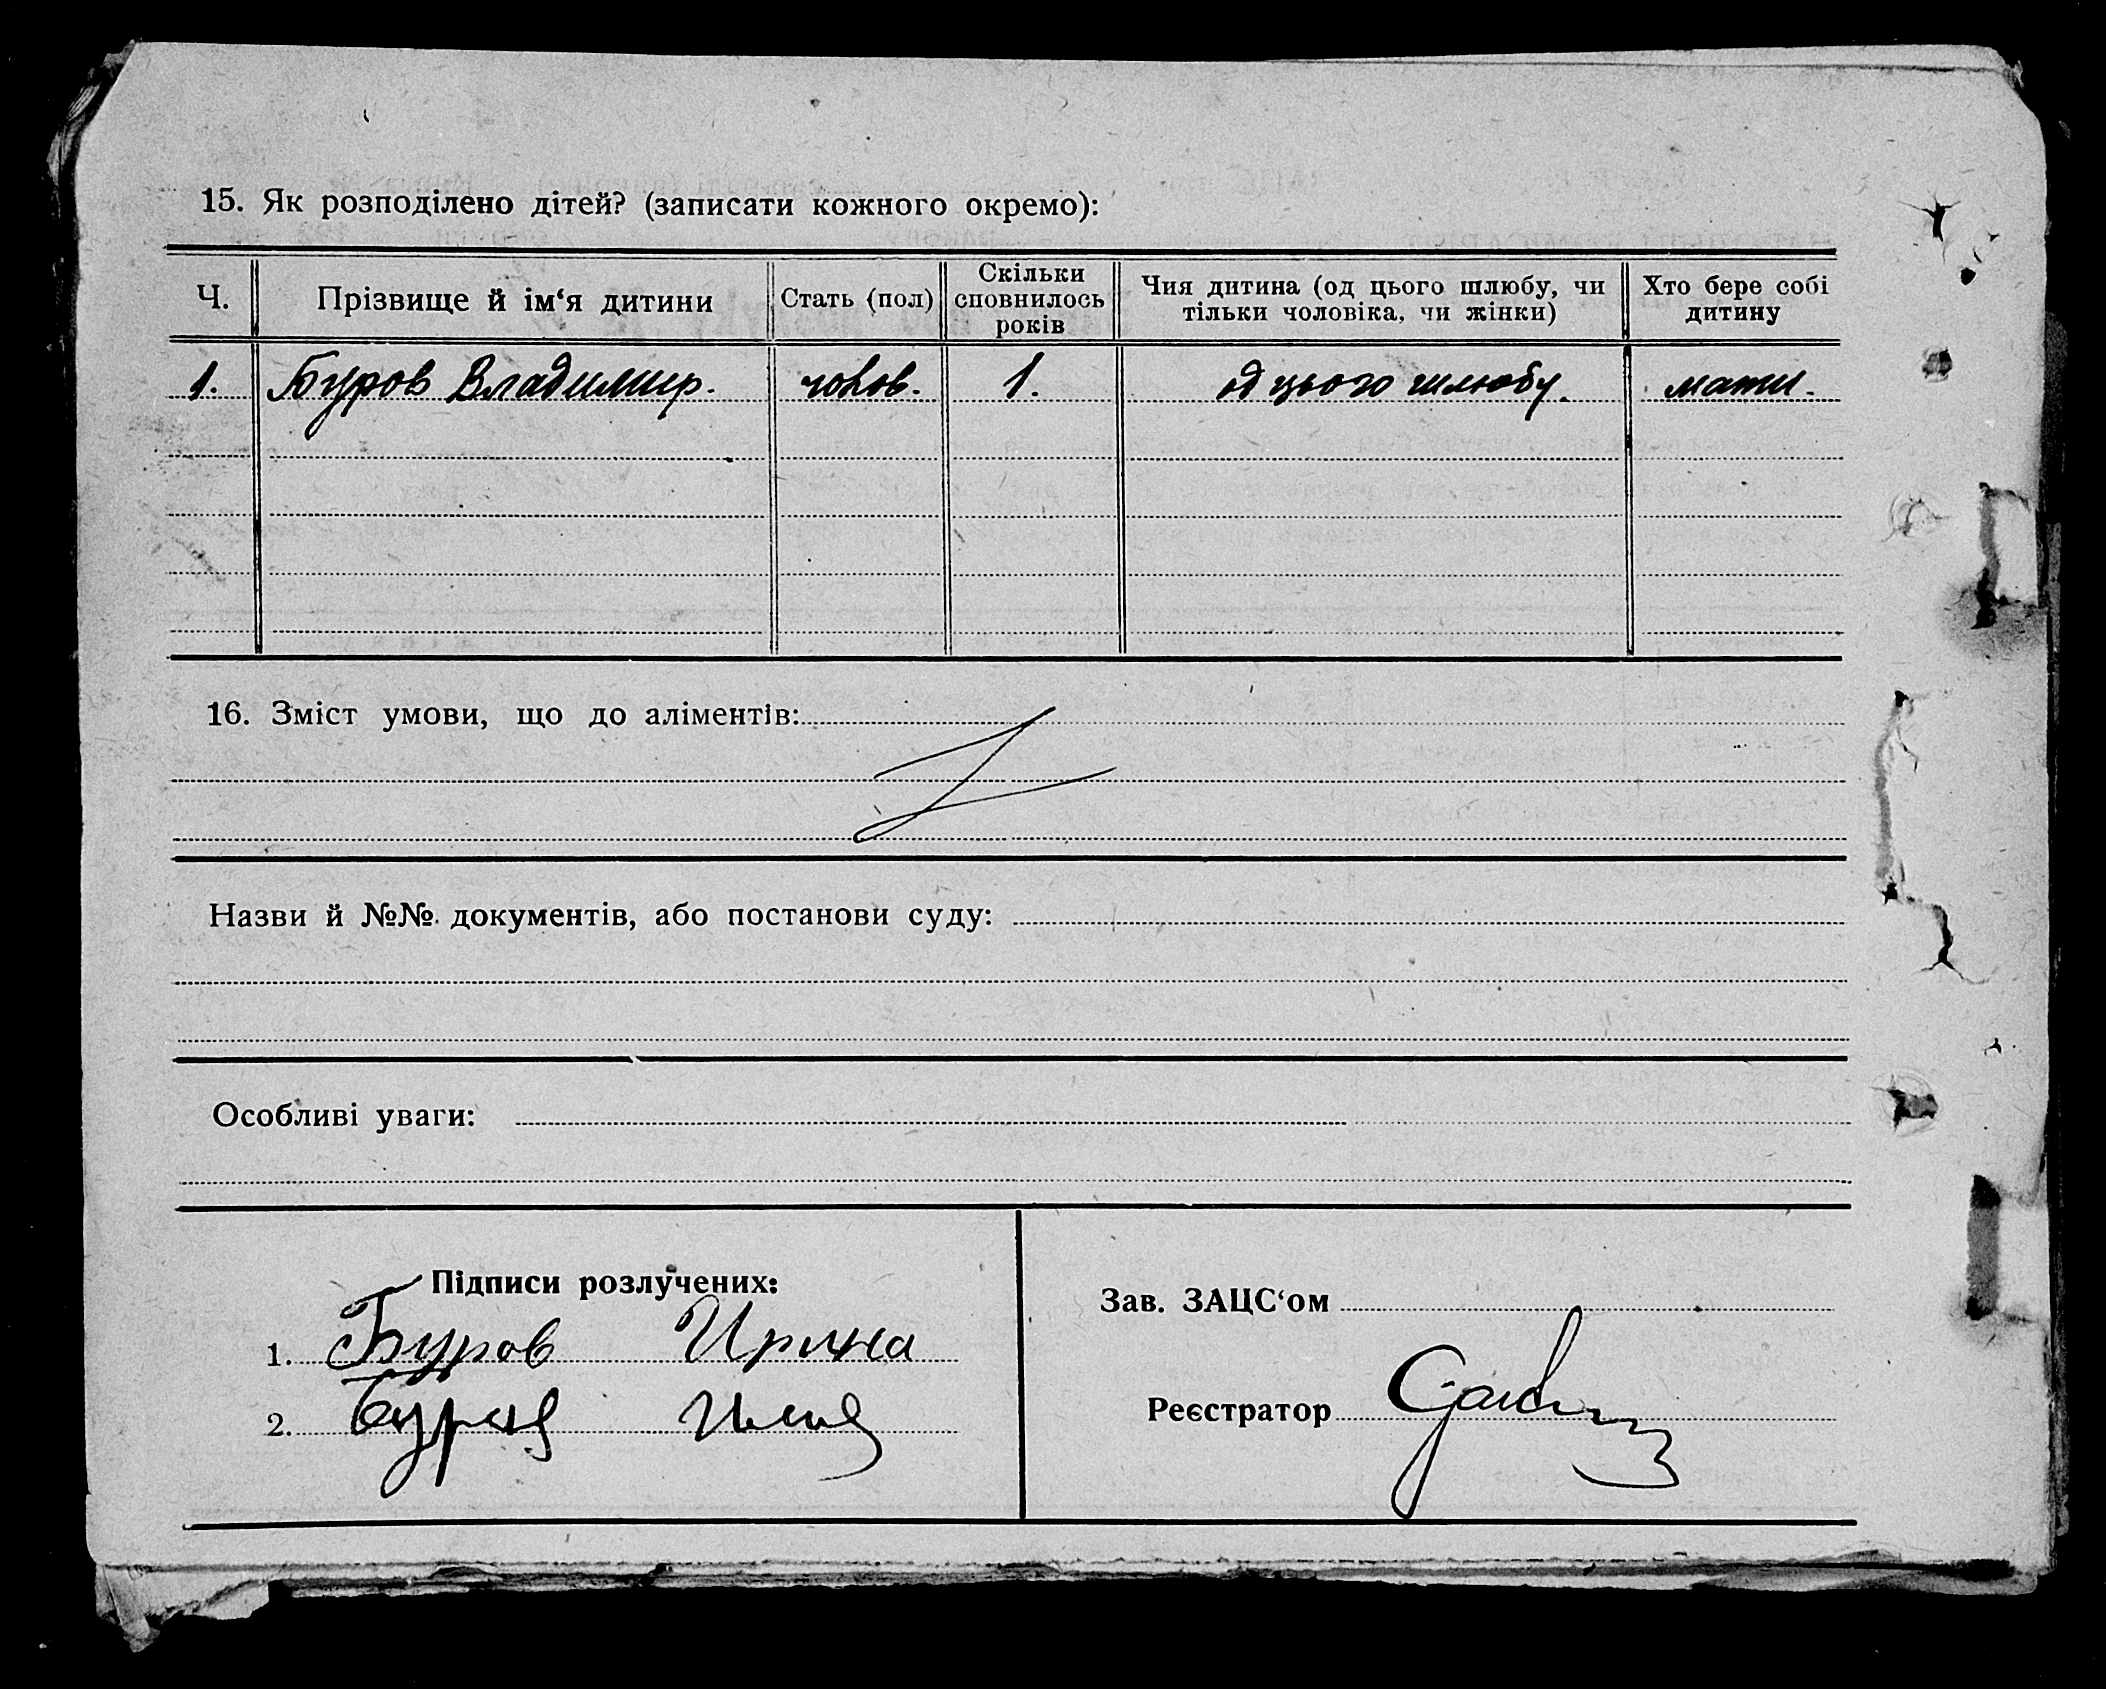 15. Як розподілено дітей? (записати кожного окремо):
Ч. Прізвище й ім‘я дитини Стать (пол) Скільки сповнилось років Чия дитина (од цього шлюбу, чи тільки чоловіка, чи жінки) Хто бере собі дитину
1. Буров Владимир. чолов. 1. од цього шлюбу. мати.
16. Зміст умови, що до аліментів:
Назви й №№ документів, або постанови суду:
Особливі уваги:
Підписи розлучених:
1. Буров Ирина
2. Буров
Зав. ЗАЦС‘ом
Реєстратор